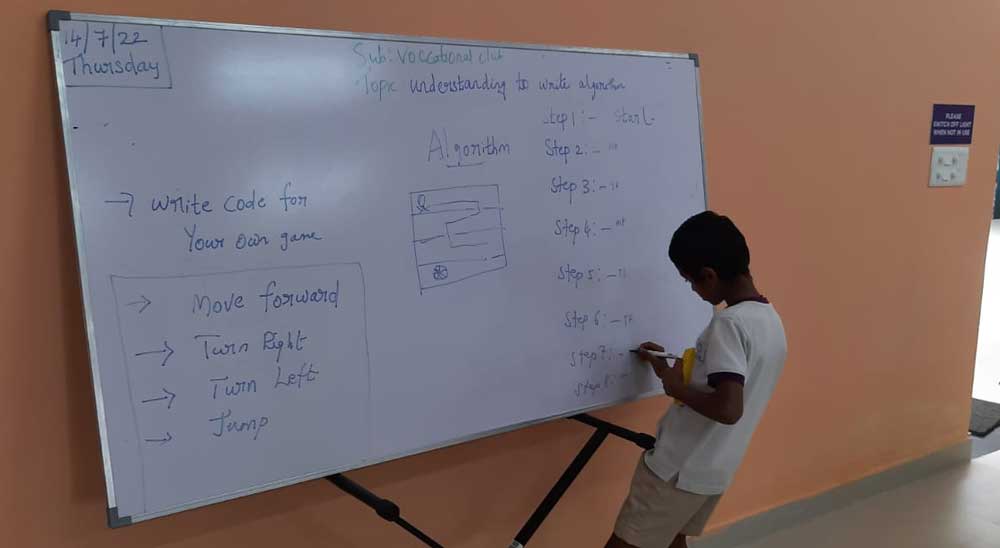 14/7/22
Thursday
Sub: Voccational club
Topic understanding to write algorithm
Algorithm
→ Write code for
Your own game
→ Move forward
→ Turn Right
→ Turn Left
→ Jump
Step 1:- Start
Step 2:- "
Step 3:- "
Step 4:- "
Step 5:- "
Step 6:- "
Step 7:-
Step 8:-
PLEASE
SWITCH OFF LIGHT
WHEN NOT IN USE